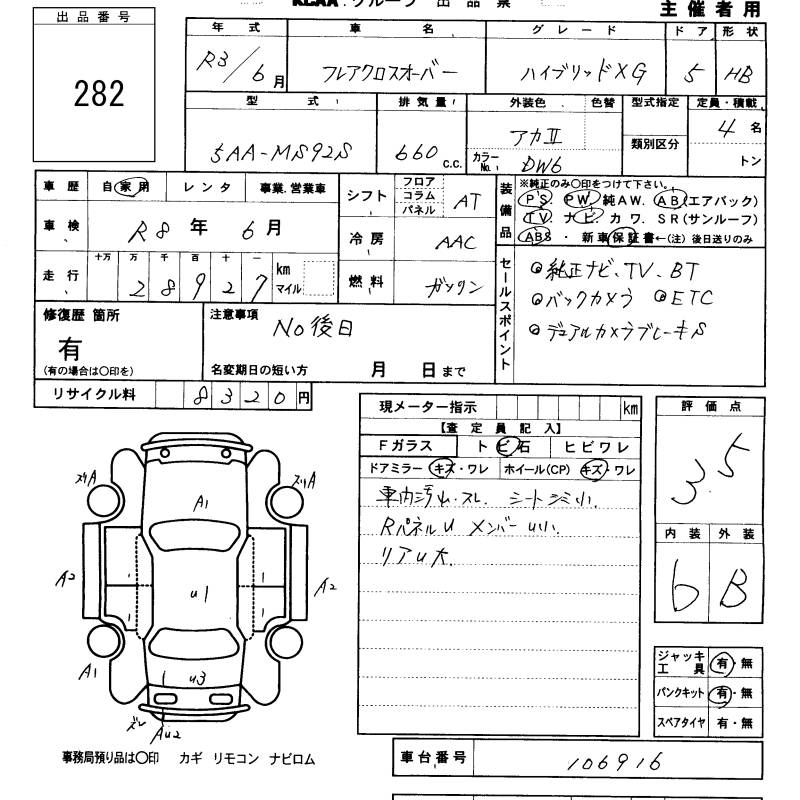 KCAA.グループ 出品票
主催者用
出品番号
282
年式 車名 グレード ドア 形状
R3/6月 フレアクロスオーバー ハイブリッドXG 5 HB
型式 排気量 外装色 色替 型式指定 定員・積載
5AA-MS92S 660 c.c. アカII 類別区分 4名
カラーNo. DW6 トン
車歴 自家用 レンタ 事業.営業車
車検 R8年6月
走行 十万 万 千 百 十 一
28927 km マイル
シフト フロア コラム パネル AT
冷房 AAC
燃料 ガソリン
装備品
※純正のみ〇印をつけて下さい。
PS. PW. 純AW. AB(エアバック)
TV ナビ. カワ. SR(サンルーフ)
ABS・新車保証書←(注)後日送りのみ
セールスポイント
◎純正ナビ、TV、BT
◎バックカメラ ◎ETC
◎デュアルカメラブレーキS
修復歴 箇所
有
(有の場合は〇印を)
注意事項
No後日
名変期日の短い方 月 日まで
リサイクル料 8320円
現メーター指示 km
【査定員記入】
Fガラス トビ石 ヒビワレ
ドアミラー キズ・ワレ ホイール(CP) キズ・ワレ
車内汚小.スレ. シートシミ小.
RパネルU メンバーU小.
リアU大.
評価点
3.5
内装 外装
6 B
ズリA ズリA
A1
A2 U1 A2
A1 U3
ズレ AU2
ジャッキ工具 有・無
パンクキット 有・無
スペアタイヤ 有・無
事務局預り品は〇印 カギ リモコン ナビロム
車台番号 106916